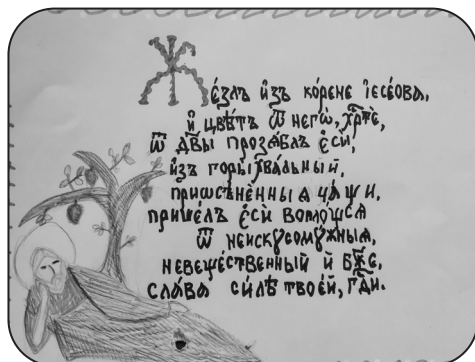 Же́злъ и҆зъ ко́рене і҆есе́ова,
и҆ цвѣ́тъ ѿ негѡ̀, хрⷭ҇тѐ,
ѿ дв҃ы прозѧ́блъ є҆сѝ,
и҆зъ горы̀ хва́льный,
приѡсѣне́нныѧ ча́щи,
прише́лъ є҆сѝ вопло́щсѧ
ѿ неискꙋсомꙋ́жныѧ,
невеще́ственный и҆ бж҃е,
сла́ва си́лѣ твое́й, гдⷭ҇и.